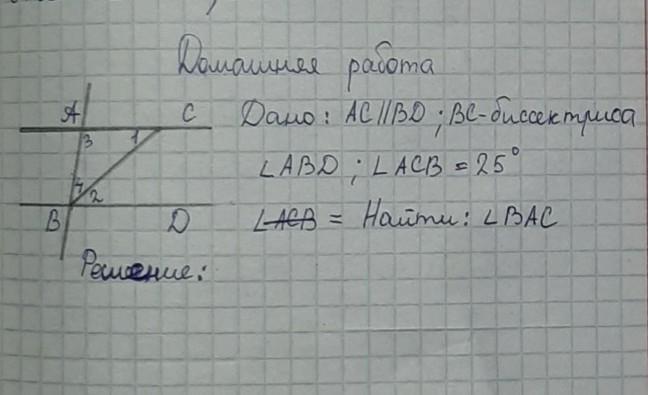 Домашняя работа
A C Дано: AC∥BD; BC-биссектриса
3 1
∠ABD; ∠ACB = 25°
4 2
B D ∠ACB = Найти: ∠BAC
Решение: